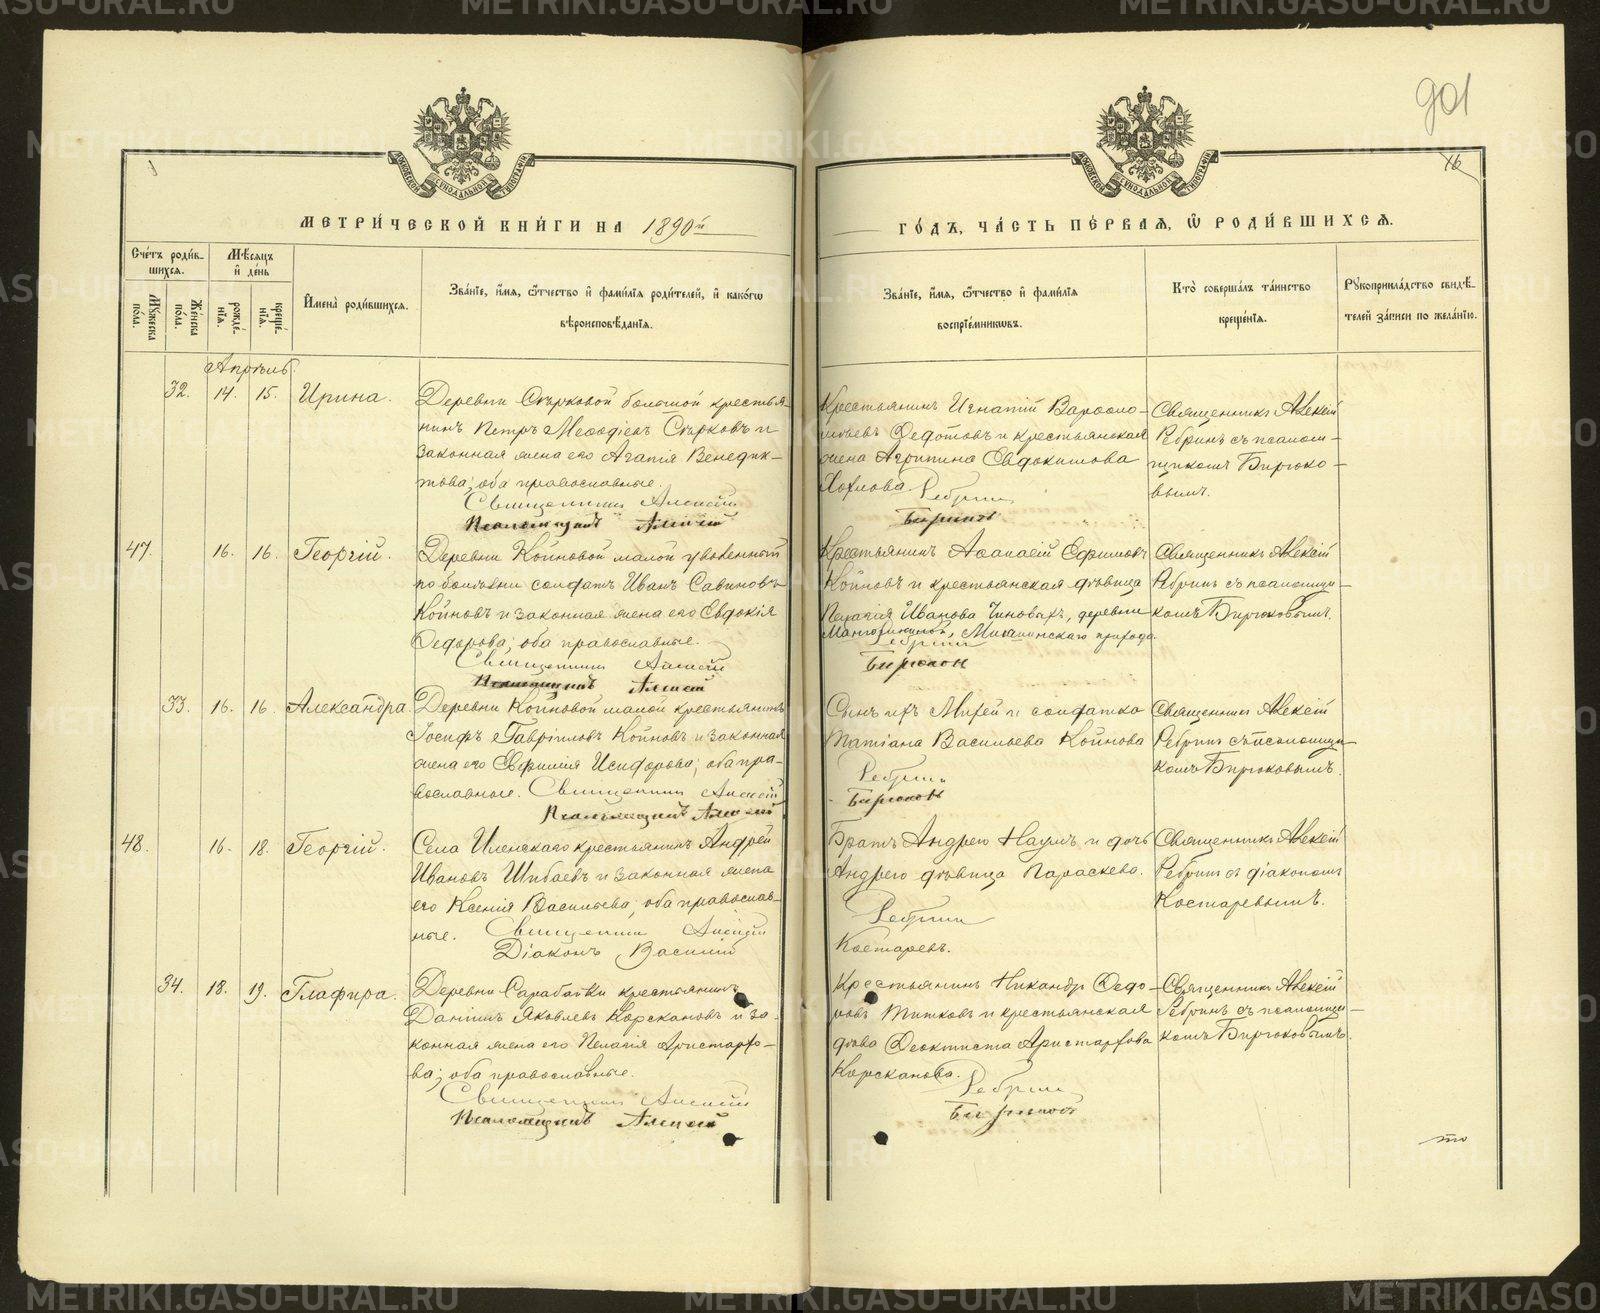 901
16
МЕТРИ́ЧЕСКОЙ КНИ́ГИ НА 1890й
ГО́ДЪ, ЧА́СТЬ ПЕ́РВАЯ, Ѡ РОДИ́ВШИХСЯ.
Сче́тъ роди́в-
шихся.
Мѣ́сяцъ
и҆ де́нь
Му́жеска
по́ла.
Же́нска
по́ла.
рожде́-
нїя.
креще́-
нїя.
И҆мена̀ роди́вшихся.
Зва́нїе, и҆́мя, ѻ҆́тчество и҆ фами́лїя роди́телей, и҆ како́гѡ
вѣроисповѣ́данїя.
Зва́нїе, и҆́мя, ѻ҆́тчество и҆ фами́лїя
воспрїе́мникѡвъ.
Кто̀ соверша́лъ та́инство
креще́нїя.
Рꙋкоприкла́дство свидѣ́-
телей за́писи по жела́нїю.
Апрѣль.
32. 14. 15. Ирина.
Деревни Сѣрковой большой крестья-
нинъ Петръ Меѳодіевъ Сѣрковъ и
законная жена его Агапія Венедик-
това; оба православные.
Священникъ Алексій
Псаломщикъ Алексій
Крестьянинъ Игнатій Варѳоло-
меевъ Ѳедотовъ и крестьянская
жена Агрипина Евдокимова
Хохлова.
Ребринъ
Бирюковъ
Священникъ Алексій
Ребринъ съ псалом-
щикомъ Бирюко-
вымъ.
47. 16. 16. Георгій.
Деревни Койновой малой уволенный
по болѣзни солдатъ Иванъ Савиновъ
Койновъ и законная жена его Евдокія
Ѳедорова; оба православные.
Священникъ Алексій
Псаломщикъ Алексій
Крестьянинъ Аѳанасій Ефимовъ
Койновъ и крестьянская дѣвица
Пелагія Иванова Чиновыхъ, деревни
прихода.
Ребринъ
Бирюковъ
Священникъ Алексій
Ребринъ съ псаломщи-
комъ Бирюковымъ.
33. 16. 16. Александра.
Деревни Койновой малой крестьянинъ
Іосифъ Гавріиловъ Койновъ и законная
жена его Евфимія Исидорова; оба пра-
вославные. Священникъ Алексій
Псаломщикъ Алексій
Сынъ ихъ Мирей и солдатка
Татіана Васильева Койнова
Ребринъ
Бирюковъ
Священникъ Алексій
Ребринъ съ псаломщи-
комъ Бирюковымъ.
48. 16. 18. Георгій.
Села Иленскаго крестьянинъ Андрей
Ивановъ Шибаевъ и законная жена
его Ксенія Васильева; оба православ-
ные. Священникъ Алексій
Діаконъ Василій
Братъ Андрею Наумъ и дочь
Андрея дѣвица Параскева.
Ребринъ
Костаревъ.
Священникъ Алексій
Ребринъ съ діакономъ
Костаревымъ.
34. 18. 19. Глафира.
Деревни Сарабайки крестьянинъ
Даніилъ Яковлевъ Корскановъ и за-
конная жена его Пелагія Аристархо-
ва; оба православные.
Священникъ Алексій
Псаломщикъ Алексій
Крестьянинъ Никандр Ѳедо-
ровъ Титковъ и крестьянская
дѣвка Ѳеоктиста Аристархова
Корсканова.
Ребринъ
Бирюковъ
Священникъ Алексій
Ребринъ съ псаломщи-
комъ Бирюковымъ.
METRIKI.GASO-URAL.RU